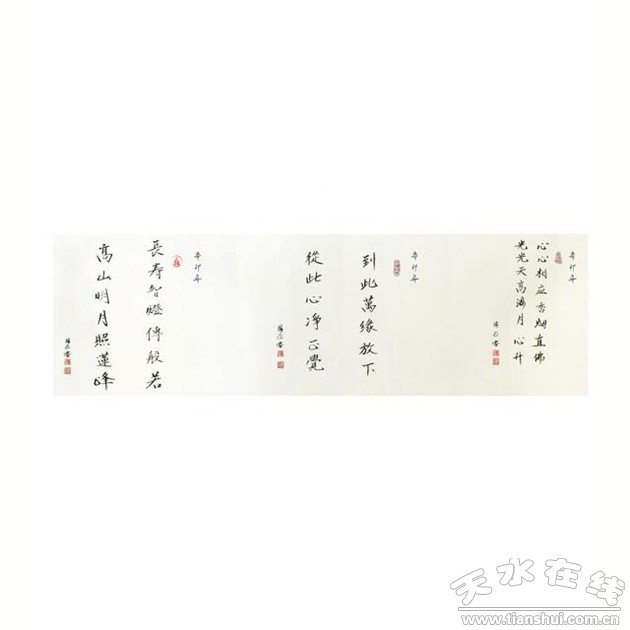 辛卯年
心心相应香烟直佛
光光天高海月心升
辛卯年
到此萬緣放下
從此心净正覺
辛卯年
長寿智燈傳般若
高山明月照蓮峰
天水在线
www.tianshui.com.cn